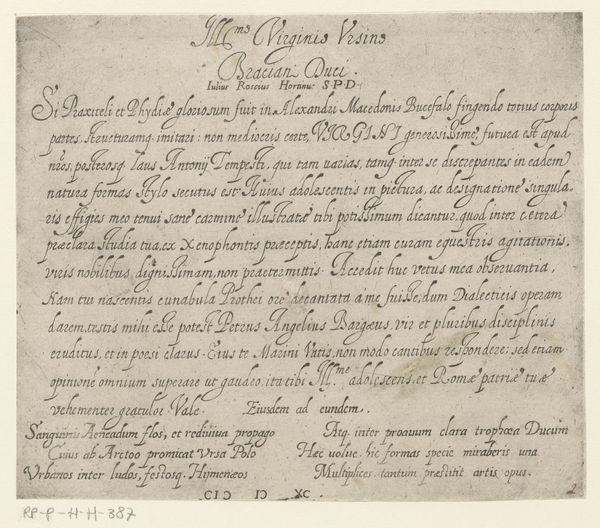 Ill.mo Virginio Vrsino
Braciani Duci.
Iulius Roscius Hortinus S.P.D.
Si Praxiteli et Phydiæ gloriosum fuit in Alexandri Macedonis Bucefalo fingendo totius corporis
partes, structuramq. imitari: non mediocris certe, VIRGINI generosissime, futura est apud
nr̃os, posterosq. laus Antonij Tempesti, qui tam uarias, tamq. inter se discrepantes in eadem
natura formas stylo secutus est. Huius adolescentis in pictura, ac designatione singula-
ris effigies meo tenui sane carmine illustratæ tibi potissimum dicantur, quod inter cætera
præclara studia tua, ex Xenophontis præceptis, hanc etiam curam equestris agitationis,
viris nobilibus dignissimam, non praetermittis. Accedit huc vetus mea obseruantia,
Nam tui nascentis cunabula Prothei ore decantata a me fuisse, dum Dialecticis operam
darem, testis mihi esse potest Petrus Angelius Bargæus, vir et pluribus disciplinis
eruditus, et in poesi clarus. Eius te Marini Vatis, non modo cantibus respondere; sed etiam
opinione omnium superare ut gaudeo, ita tibi Ill.me adolescens, et Romæ patriæ tuæ
vehementer gratulor Vale. Eiusdem ad eundem.
Sanguinis Aeneadum flos, et rediuiua propago
Cuius ab Arctoo promicat Vrsa Polo
Vrbanos inter ludos, festosq. Hijmenæos
Atq. inter proauum clara trophæa Ducum
Hæc uolue. hic formas specie miraberis una
Multiplices. tantum præstitit artis opus.
CIↃ IↃ XC
2
RP-P-H-H-387